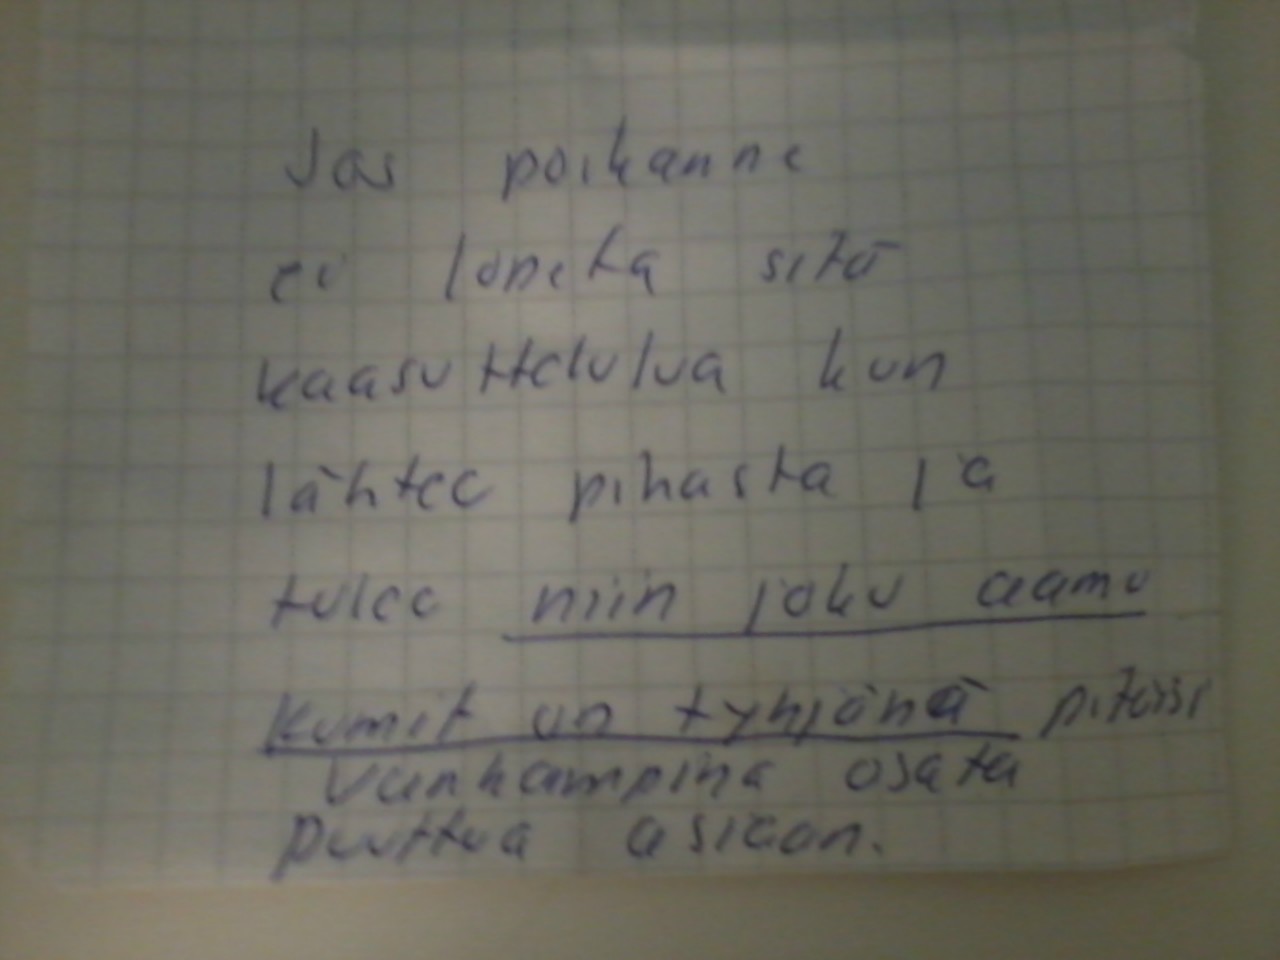 Jos poikanne
ei lopeta sitä
kaasuttelulua kun
lähtee pihasta ja
tulee niin joku aamu
kumit on tyhjänä pitäisi
vanhampina osata
puuttua asiaan.